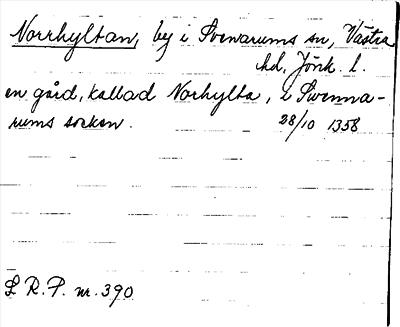 Norrhyltan, by i Svenarums sn, Västra
hd, Jönk. l.
en gård, kallad Norhylta, i Swenna-
rums socken. 28/10 1358
S. R. P. nr. 390